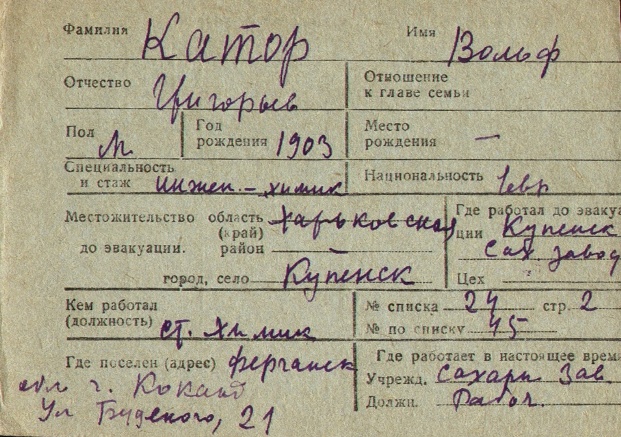 Фамилия Катор Имя Вольф
Отчество Григорьев Отношение к главе семьи
Пол М. Год рождения 1903 Место рождения —
Специальность и стаж инжен. – химик Национальность евр
Местожительство область (край) Харьковская Где работал до эвакуации Купенск
до эвакуации. район Сах завод
город, село Купенск Цех
Кем работал (должность) ст. химик № списка 24 стр. 2
№ по списку 45
Где поселен (адрес) Ферганск Где работает в настоящее врем
обл г. Коканд Учрежд. Сахарн Зав.
Ул Буденого, 21 Должн. Рабоч.